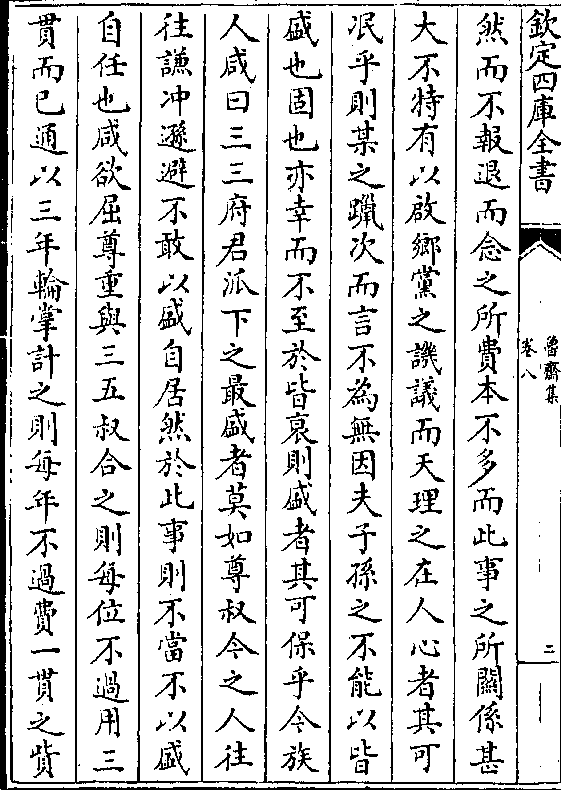 欽定四庫全書
魯齋集
卷八
三
然而不報退而念之所費本不多而此事之所關係甚
大不特有以啟鄉黨之譏議而天理之在人心者其可
泯乎則某之躐次而言不為無因夫子孫之不能以皆
盛也固也亦幸而不至於皆衰則盛者其可保乎今族
人咸曰三三府君派下之最盛者莫如尊叔今之人往
往謙冲遜避不敢以盛自居然於此事則不當不以盛
自任也咸欲屈尊重與三五叔合之則每位不過用三
貫而已通以三年輪掌計之則每年不過費一貫之貲